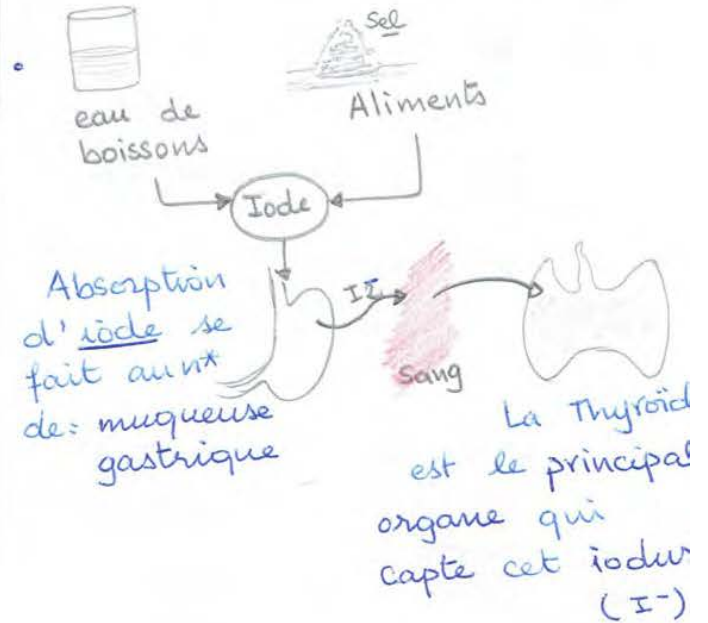 Sel
eau de
boissons
Aliments
Iode
Absorption
d'iode se
fait au n*
de: muqueuse
gastrique
I-
Sang
La Thyroïd
est le principal
organe qui
capte cet iodur
(I-)